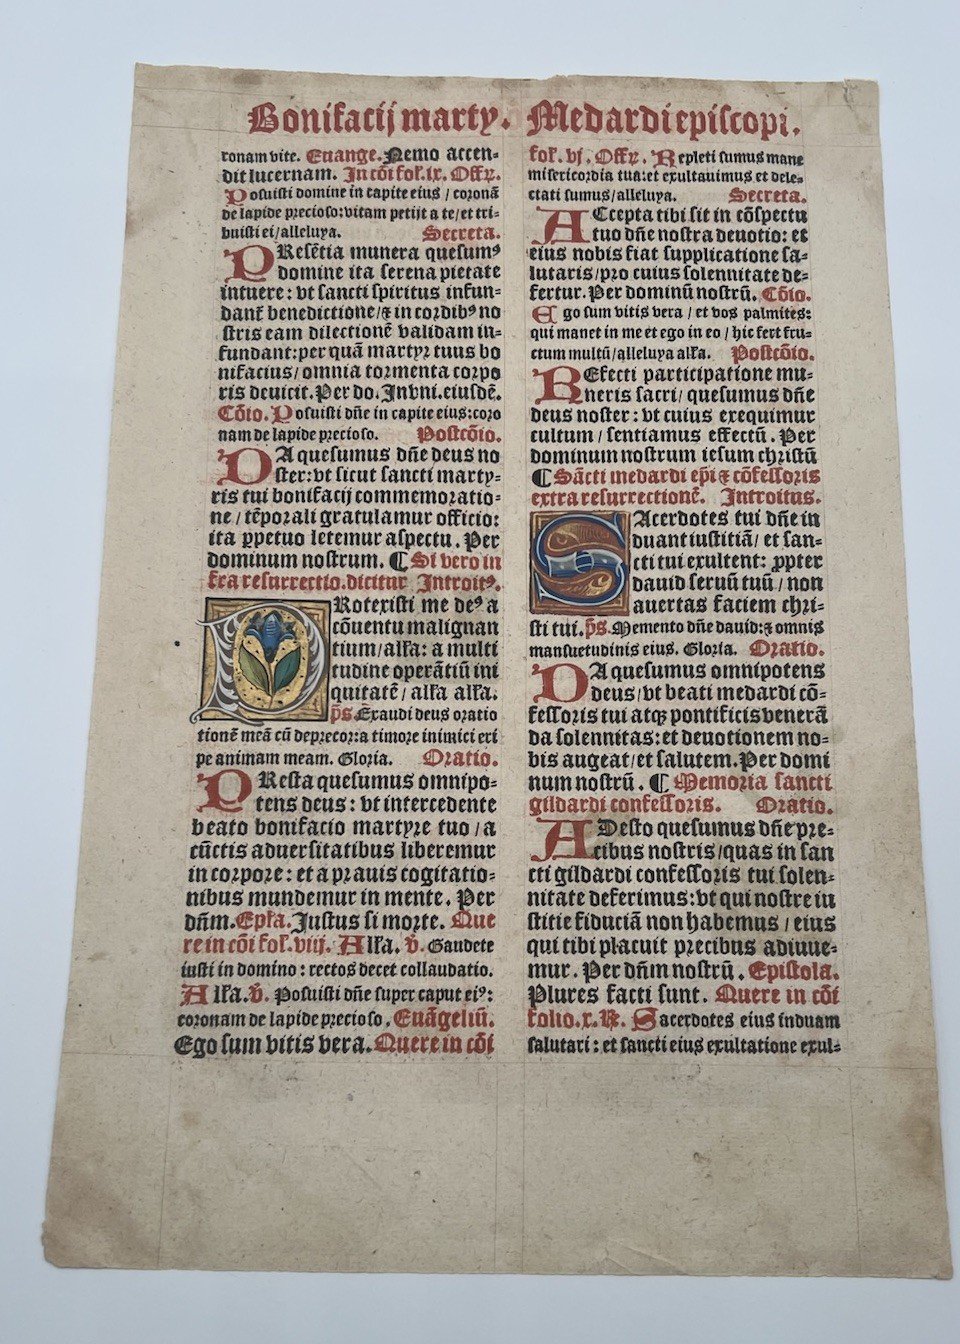 Bonifacij marty. Medardi episcopi.
ronam vite. Euange. Nemo accen-
dit lucernam. In cõi fol. ix. Offr.
Posuisti domine in capite eius / coronã
de lapide precioso: vitam petijt a te / et tri-
buisti ei / alleluya. Secreta.
PResẽtia munera quesumꝰ
domine ita serena pietate
intuere: vt sancti spiritus infun-
danť benedictione / ⁊ in cordibꝰ no
stris eam dilectionẽ validam in-
fundant: per quã martyr tuus bo
nifacius / omnia tormenta corpo
ris deuicit. Per do. In vni. eiusdẽ.
Cõio. Posuisti dñe in capite eius: coro
nam de lapide precioso. Postcõio.
DA quesumus dñe deus no
ster: vt sicut sancti marty-
ris tui bonifacij commemoratio-
ne / tẽporali gratulamur officio:
ita ꝑpetuo letemur aspectu. Per
dominum nostrum. ¶ Si vero in
fra resurrectio. dicitur Introitꝰ.
PRotexisti me deꝰ a
cõuentu malignan
tium / alľa: a multi
tudine operãtiũ ini
quitatẽ / alľa alľa.
p̃s Exaudi deus oratio
tionẽ meã cũ deprecor: a timore inimici eri
pe animam meam. Gloria. Oratio.
PResta quesumus omnipo-
tens deus: vt intercedente
beato bonifacio martyre tuo / a
cũctis aduersitatibus liberemur
in corpore: et a prauis cogitatio-
nibus mundemur in mente. Per
dñm. Epľa. Justus si morte. Que
re in cõi fol. viij. Alľa. ℣. Gaudete
iusti in domino: rectos decet collaudatio.
Alľa. ℣. Posuisti dñe super caput eiꝰ:
coronam de lapide precioso. Euãgeliũ.
Ego sum vitis vera. Quere in cõi
fol. vj. Offr. Repleti sumus mane
misericordia tua: et exultauimus et dele-
ctati sumus / alleluya. Secreta.
ACcepta tibi sit in cõspectu
tuo dñe nostra deuotio: et
eius nobis fiat supplicatione sa-
lutaris / pro cuius solennitate de-
fertur. Per dominũ nostrũ. Cõio.
Ego sum vitis vera / et vos palmites:
qui manet in me et ego in eo / hic fert fru-
ctum multũ / alleluya alľa. Postcõio.
REfecti participatione mu-
neris sacri / quesumus dñe
deus noster: vt cuius exequimur
cultum / sentiamus effectũ. Per
dominum nostrum iesum christũ
¶ Sãcti medardi ep̃i ⁊ cõfessoris
extra resurrectionẽ. Introitus.
SAcerdotes tui dñe in
duant iustitiã / et san-
cti tui exultent: ꝓpter
dauid seruũ tuũ / non
auertas faciem chri-
sti tui. p̃s. Memento dñe dauid: ⁊ omnis
mansuetudinis eius. Gloria. Oratio.
DA quesumus omnipotens
deus / vt beati medardi cõ-
fessoris tui atqꝫ pontificis venerã
da solennitas: et deuotionem no-
bis augeat / et salutem. Per domi
num nostrũ. ¶ Memoria sancti
gildardi confessoris. Oratio.
ADesto quesumus dñe pre-
cibus nostris / quas in san
cti gildardi confessoris tui solen-
nitate deferimus: vt qui nostre iu
stitie fiduciã non habemus / eius
qui tibi placuit precibus adiuue-
mur. Per dñm nostrũ. Epistola.
Plures facti sunt. Quere in cõi
folio. x. ℟. Sacerdotes eius induam
salutari: et sancti eius exultatione exul-